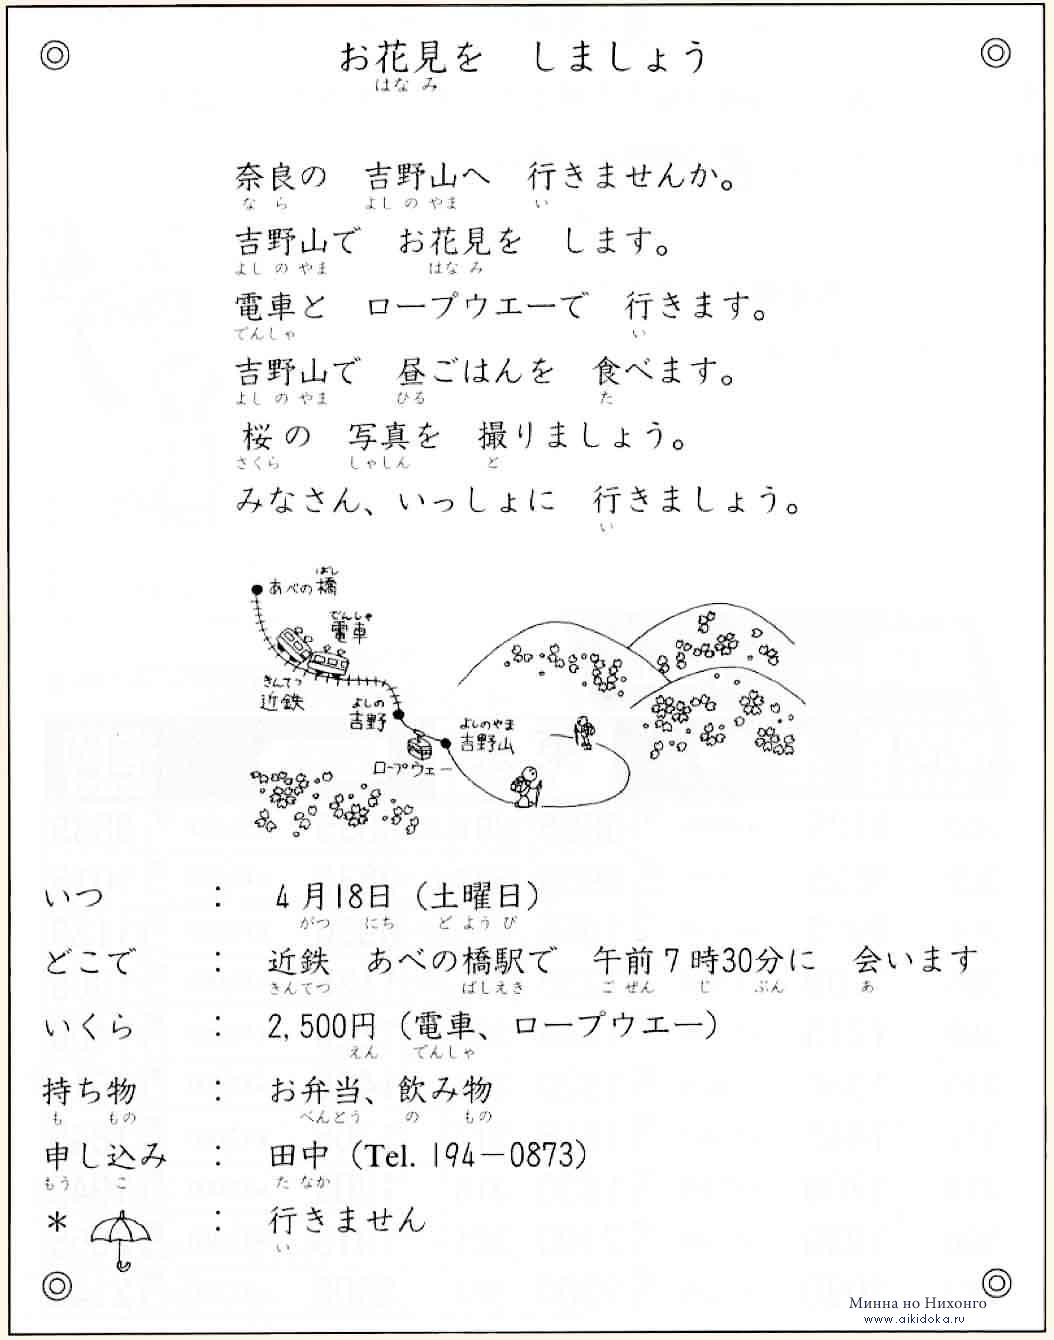 お花見を　しましょう
はな み
奈良の　吉野山へ　行きませんか。
な ら　よし の やま　い
吉野山で　お花見を　します。
よし の やま　はな み
電車と　ロープウエーで　行きます。
でんしゃ　い
吉野山で　昼ごはんを　食べます。
よし の やま　ひる　た
桜の　写真を　撮りましょう。
さくら　しゃしん　と
みなさん、いっしょに　行きましょう。
い
ばし
あべの橋
でんしゃ
電車
きんてつ
近鉄
よしの
吉野
よしのやま
吉野山
ロープウェー
いつ　：　4月18日（土曜日）
がつ　にち　ど よう び
どこで　：　近鉄　あべの橋駅で　午前7時30分に　会います
きんてつ　ばしえき　ご ぜん　じ　ぷん　あ
いくら　：　2,500円（電車、ロープウエー）
えん　でんしゃ
持ち物　：　お弁当、飲み物
も　もの　べんとう　の　もの
申し込み　：　田中（Tel. 194－0873）
もう　こ　た なか
＊　：　行きません
い
Минна но Нихонго
www.aikidoka.ru